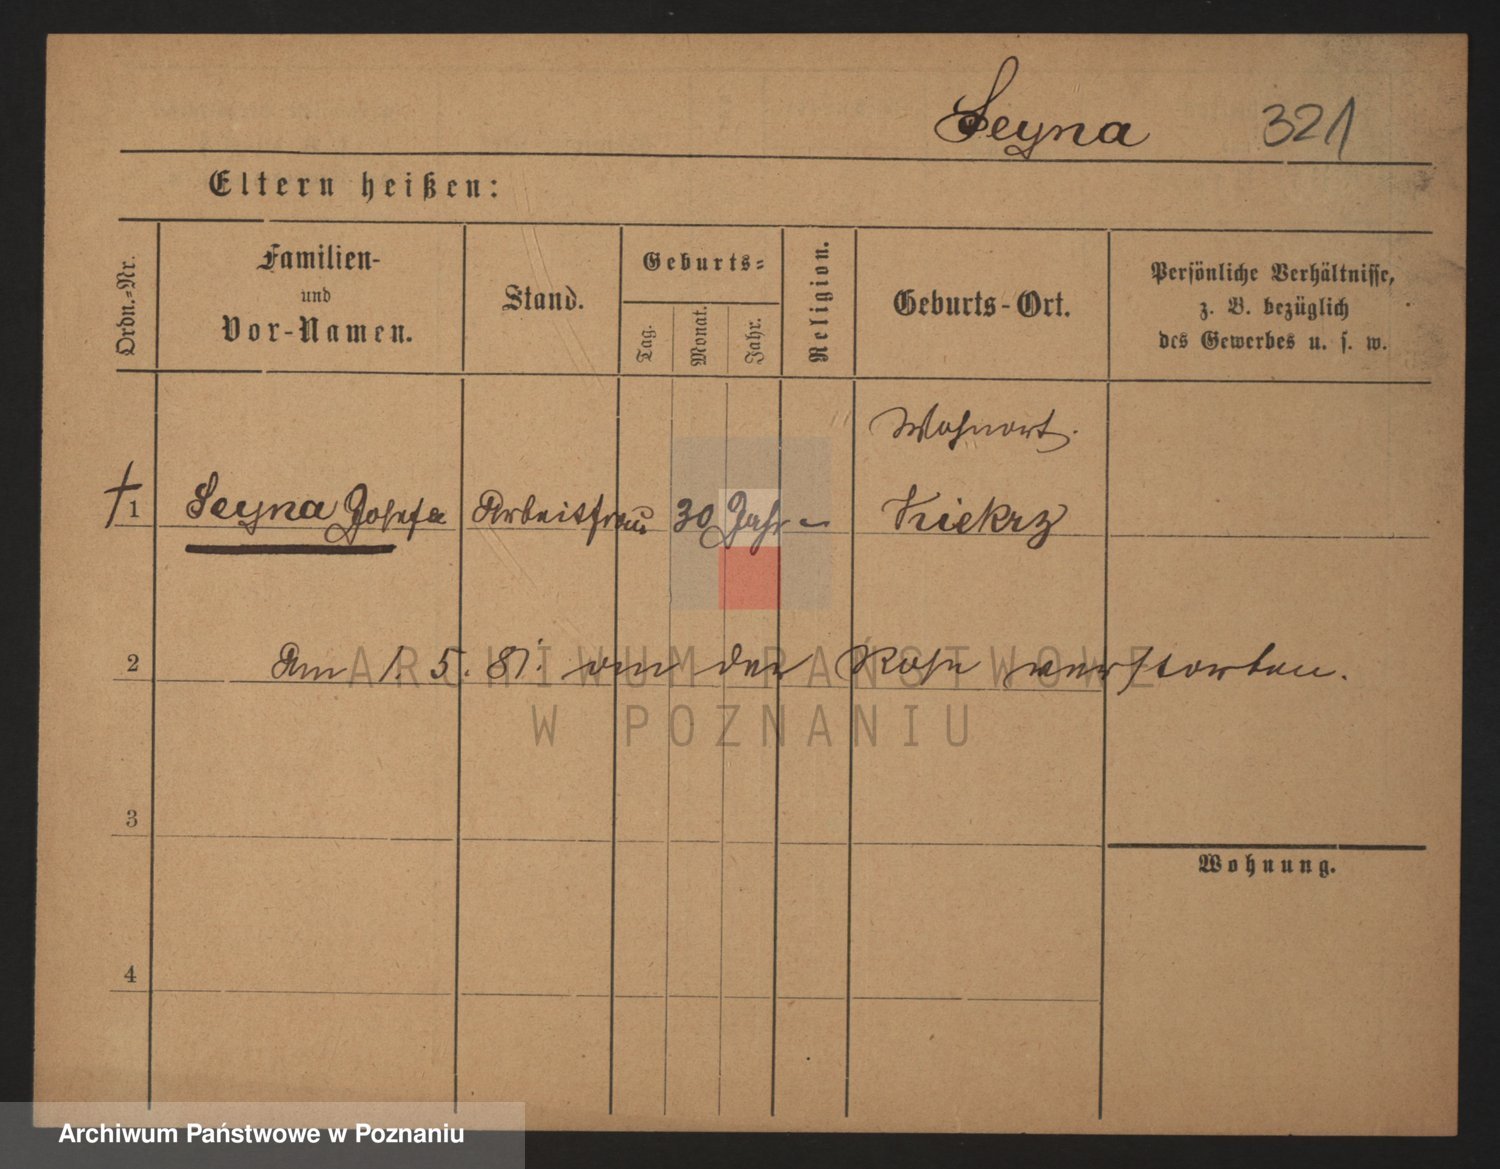 Seyna 321
Eltern heißen:
Ordn.-Nr.
Familien-
und
Vor-Namen.
Stand.
Geburts-
Tag.
Monat.
Jahr.
Religion.
Geburts-Ort.
Persönliche Verhältnisse,
z. B. bezüglich
des Gewerbes u. s. w.
Wohnort.
† 1 Seyna Josefa Arbeitsfrau 30 Jahr - Kiekrz
2 Am 1. 5. 81. an der Rose verstorben.
3
Wohnung.
4
ARCHIWUM PAŃSTWOWE
W POZNANIU
Archiwum Państwowe w Poznaniu